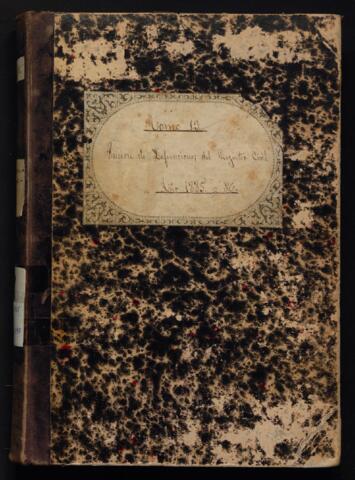 Tomo 12
de Defunciones del Registro Civil
Año 1885 a 86